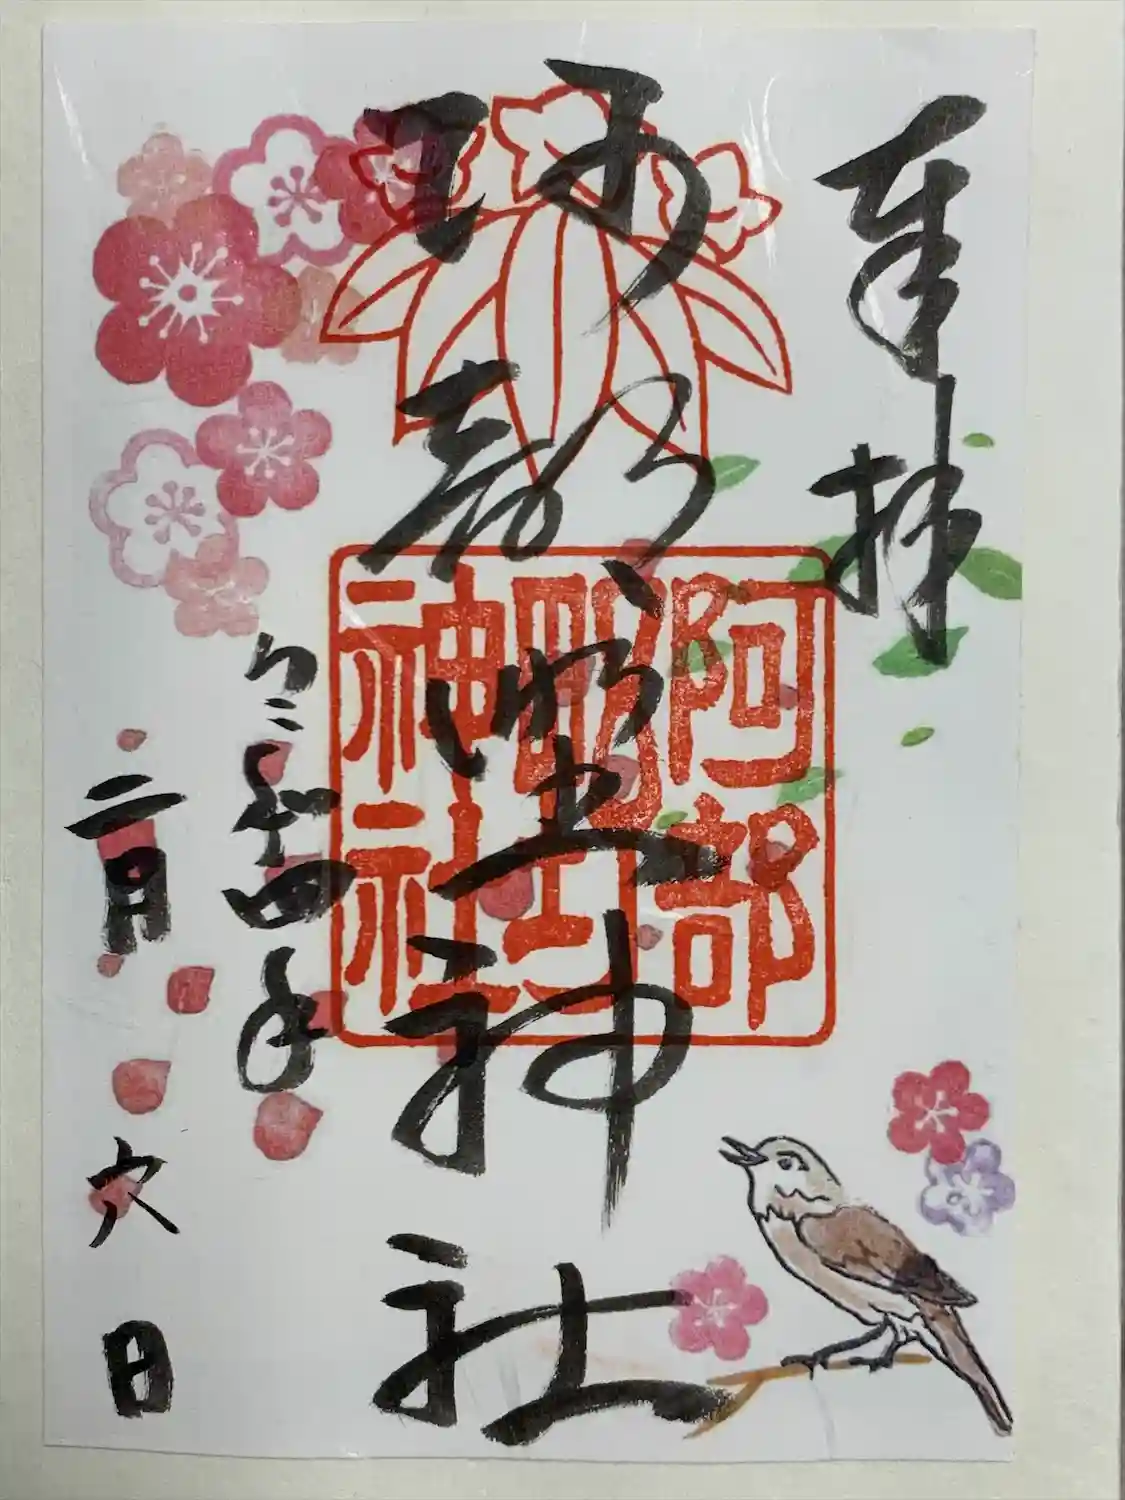 奉拝
阿部野神社
阿部野神社
令和四年
二月六日